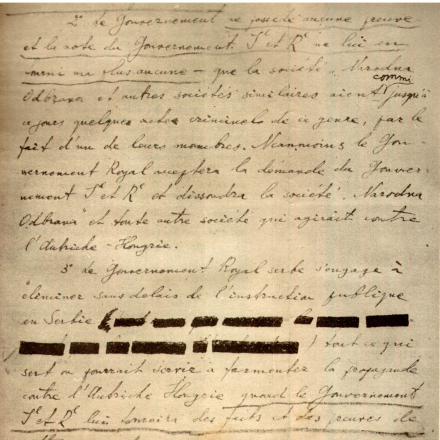 2° Le Gouvernement ne possède aucune preuve
et la note du Gouvernement I' et R' ne lui en
fourni non plus aucune – que la société „Narodna
commi
Odbrana" et autres sociétés similaires aient jusqu'à
ce jour quelques actes criminels de ce genre, par le
fait d'un de leurs membres. Néanmoins le Gou-
vernement Royal acceptera la demande du Gouver-
nement I' et R' et dissoudra la société „Narodna
Odbrana" et toute autre société qui agirait contre
l'Autriche-Hongrie.
3° Le Gouvernement Royal serbe s'engage à
éliminer sans délais de l'instruction publique
en Serbie
tout ce qui
sert ou pourrait servir à fomenter la propagande
contre l'Autriche Hongrie quand le Gouvernement
I' et R' lui fournira des faits et des preuves de